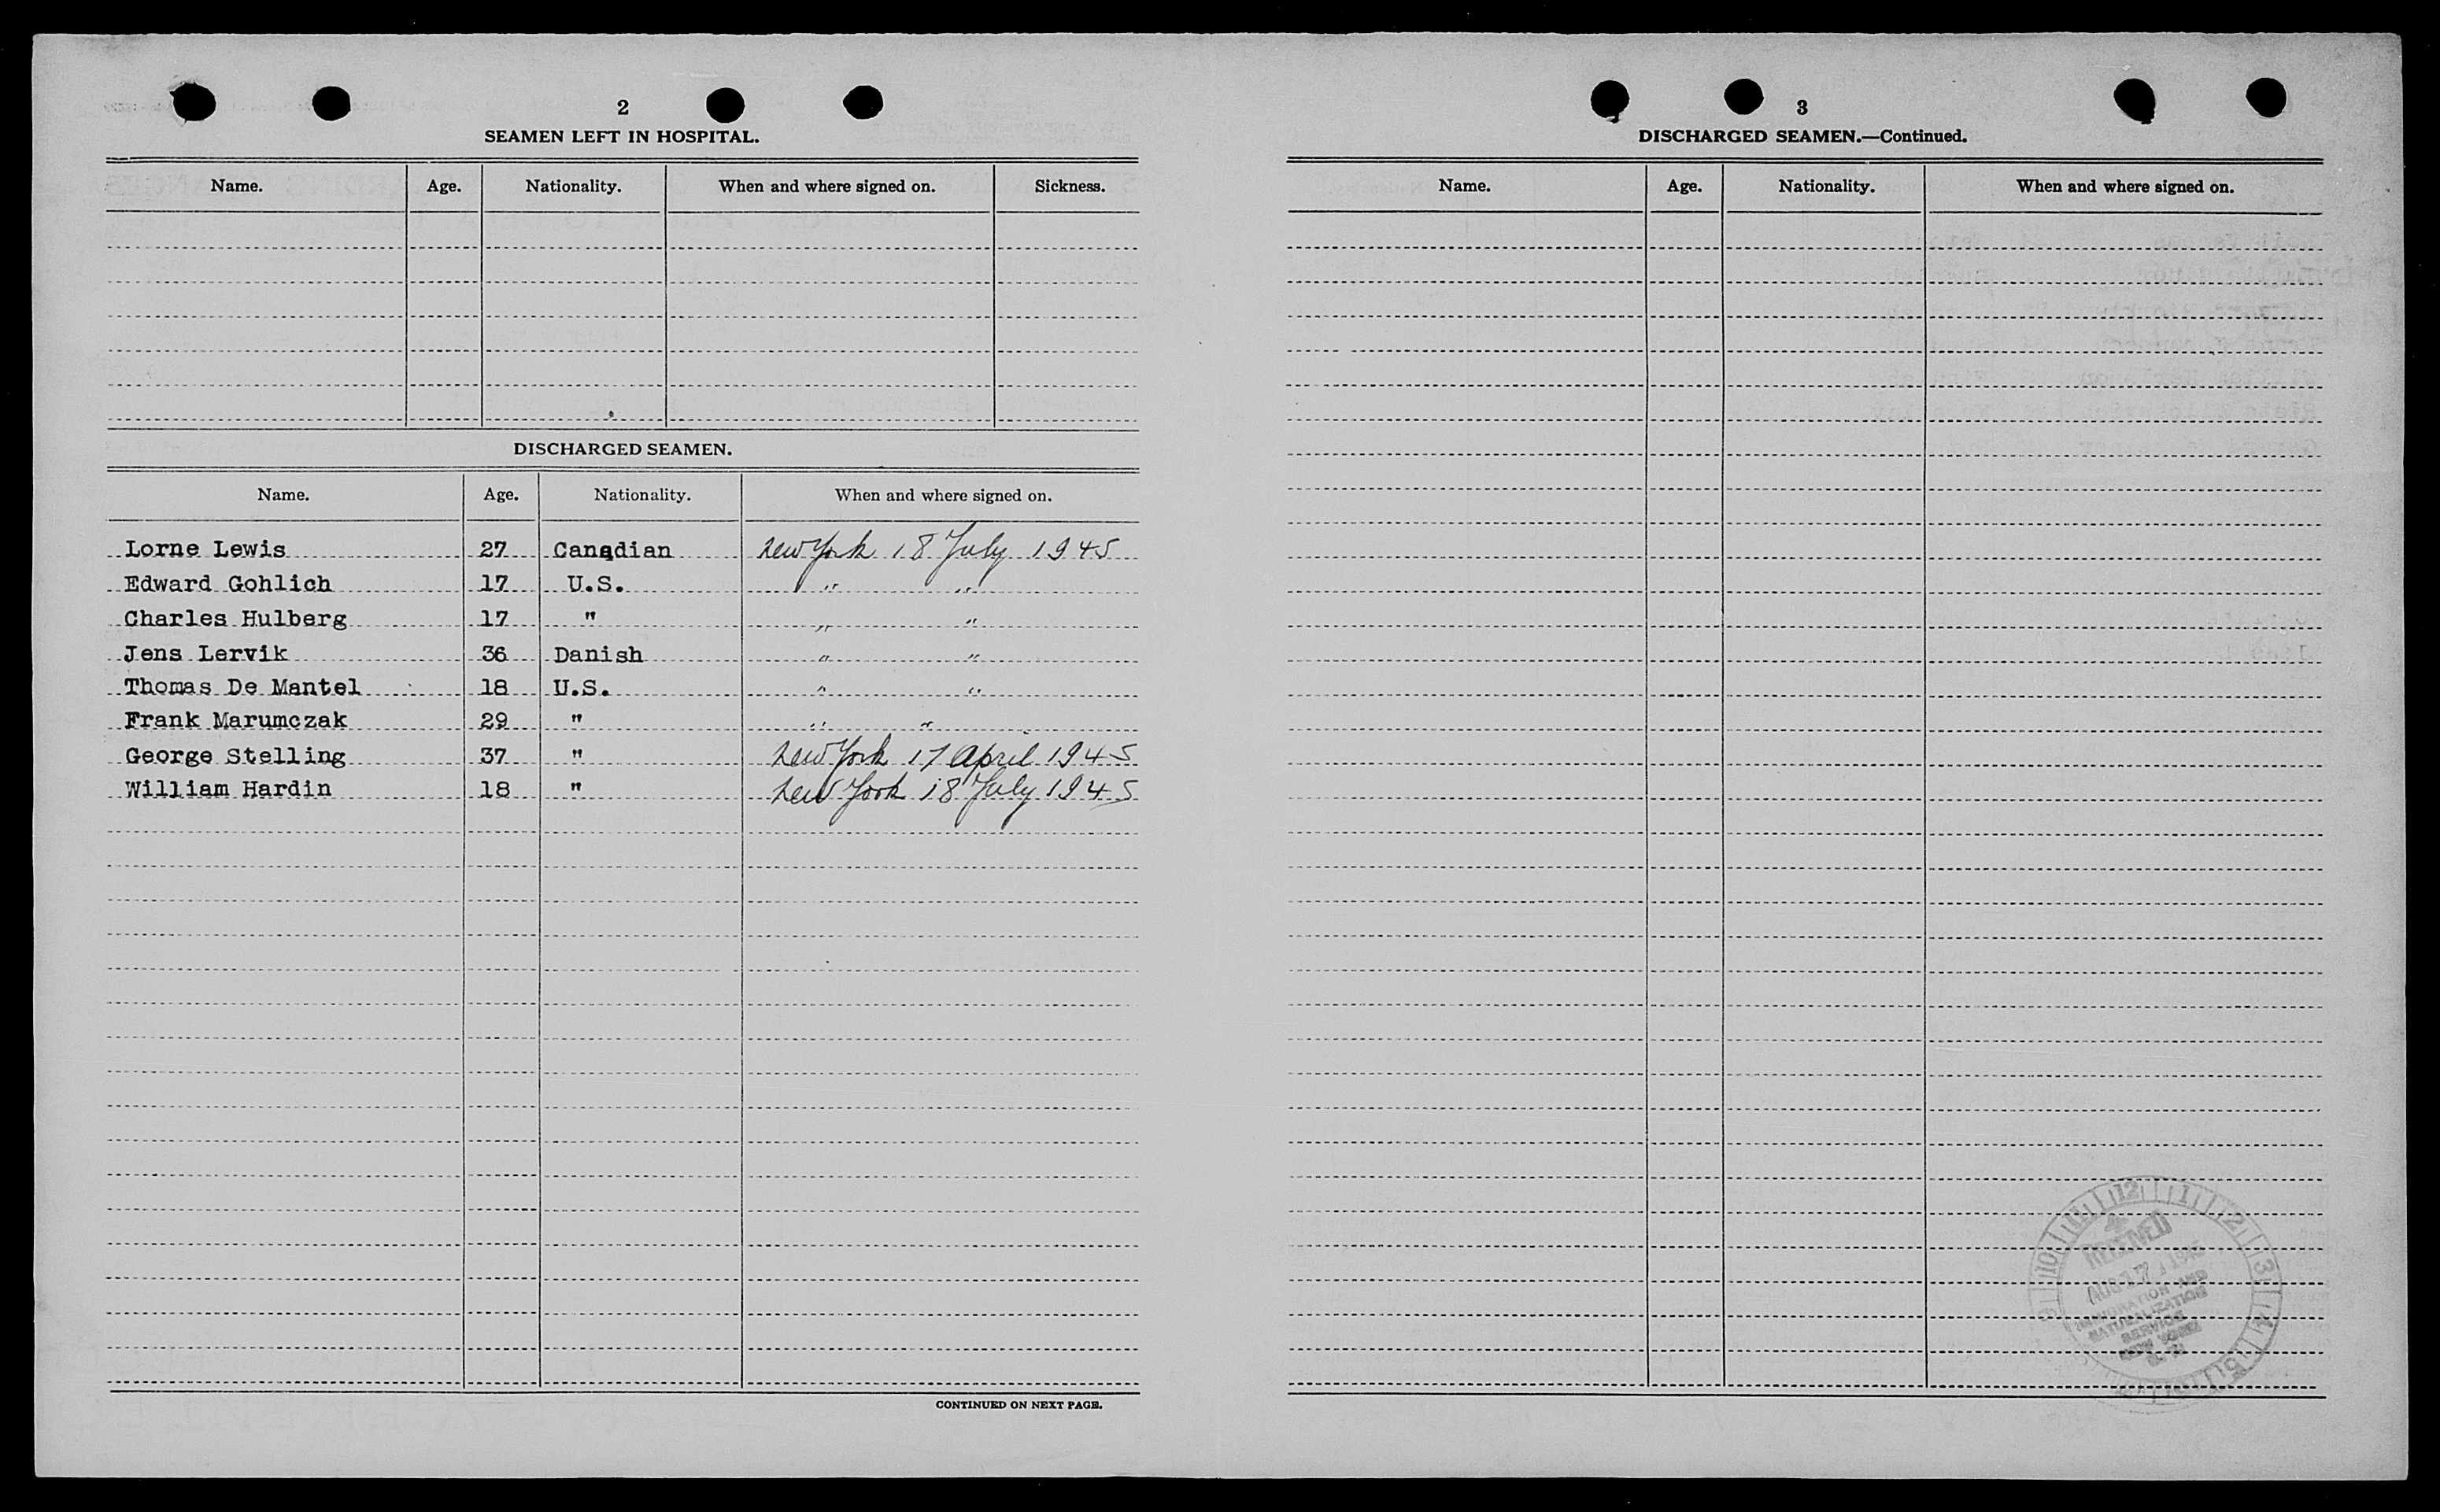 2
SEAMEN LEFT IN HOSPITAL.
Name. Age. Nationality. When and where signed on. Sickness.
DISCHARGED SEAMEN.
Name. Age. Nationality. When and where signed on.
Lorne Lewis 27 Canadian New York 18 July 1945
Edward Gohlich 17 U.S. " "
Charles Hulberg 17 " " "
Jens Lervik 36 Danish " "
Thomas De Mantel 18 U.S. " "
Frank Marumczak 29 " " "
George Stelling 37 " New York 17 April 1945
William Hardin 18 " New York 18 July 1945
CONTINUED ON NEXT PAGE.
3
DISCHARGED SEAMEN.—Continued.
Name. Age. Nationality. When and where signed on.
RECEIVED
IMMIGRATION AND
NATURALIZATION
SERVICE
NEW YORK